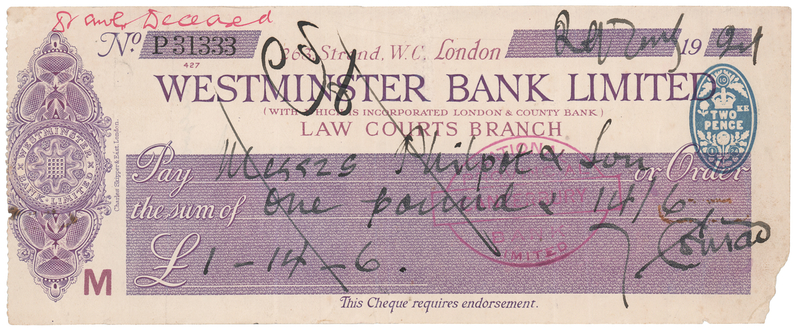 Drawer Deceased
No. P 31333
268 Strand, W.C, London
19 24
427
WESTMINSTER BANK LIMITED
(WITH WHICH IS INCORPORATED LONDON & COUNTY BANK)
LAW COURTS BRANCH
TWO
PENCE
Pay Messrs Philpot & Son or Order
the sum of One pound & 14/6
£ 1-14-6.
J. Conrad
LIMITED
M
This Cheque requires endorsement.
WESTMINSTER
BANK LTD
Charles Skipper & East, London.